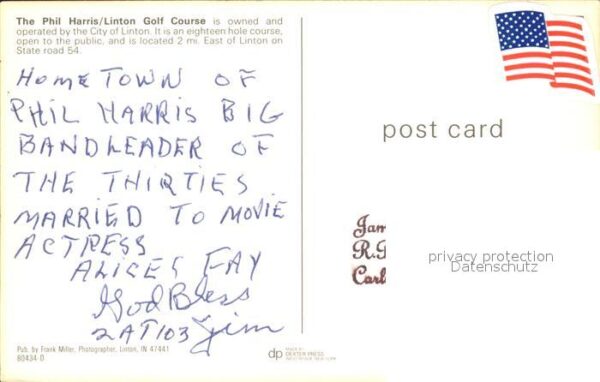 The Phil Harris/Linton Golf Course is owned and
operated by the City of Linton. It is an eighteen hole course,
open to the public, and is located 2 mi. East of Linton on
State road 54.
HOMETOWN OF
PHIL HARRIS BIG
BANDLEADER OF
THE THIRTIES
MARRIED TO MOVIE
ACTRESS
ALICES FAY
God Bless
2AT103 Jim
Pub. by Frank Miller, Photographer, Linton, IN 47441
80434 D
post card
Jam
R.
Carl
privacy protection
Datenschutz
dp
MADE BY
DEXTER PRESS
WEST NYACK, NEW YORK